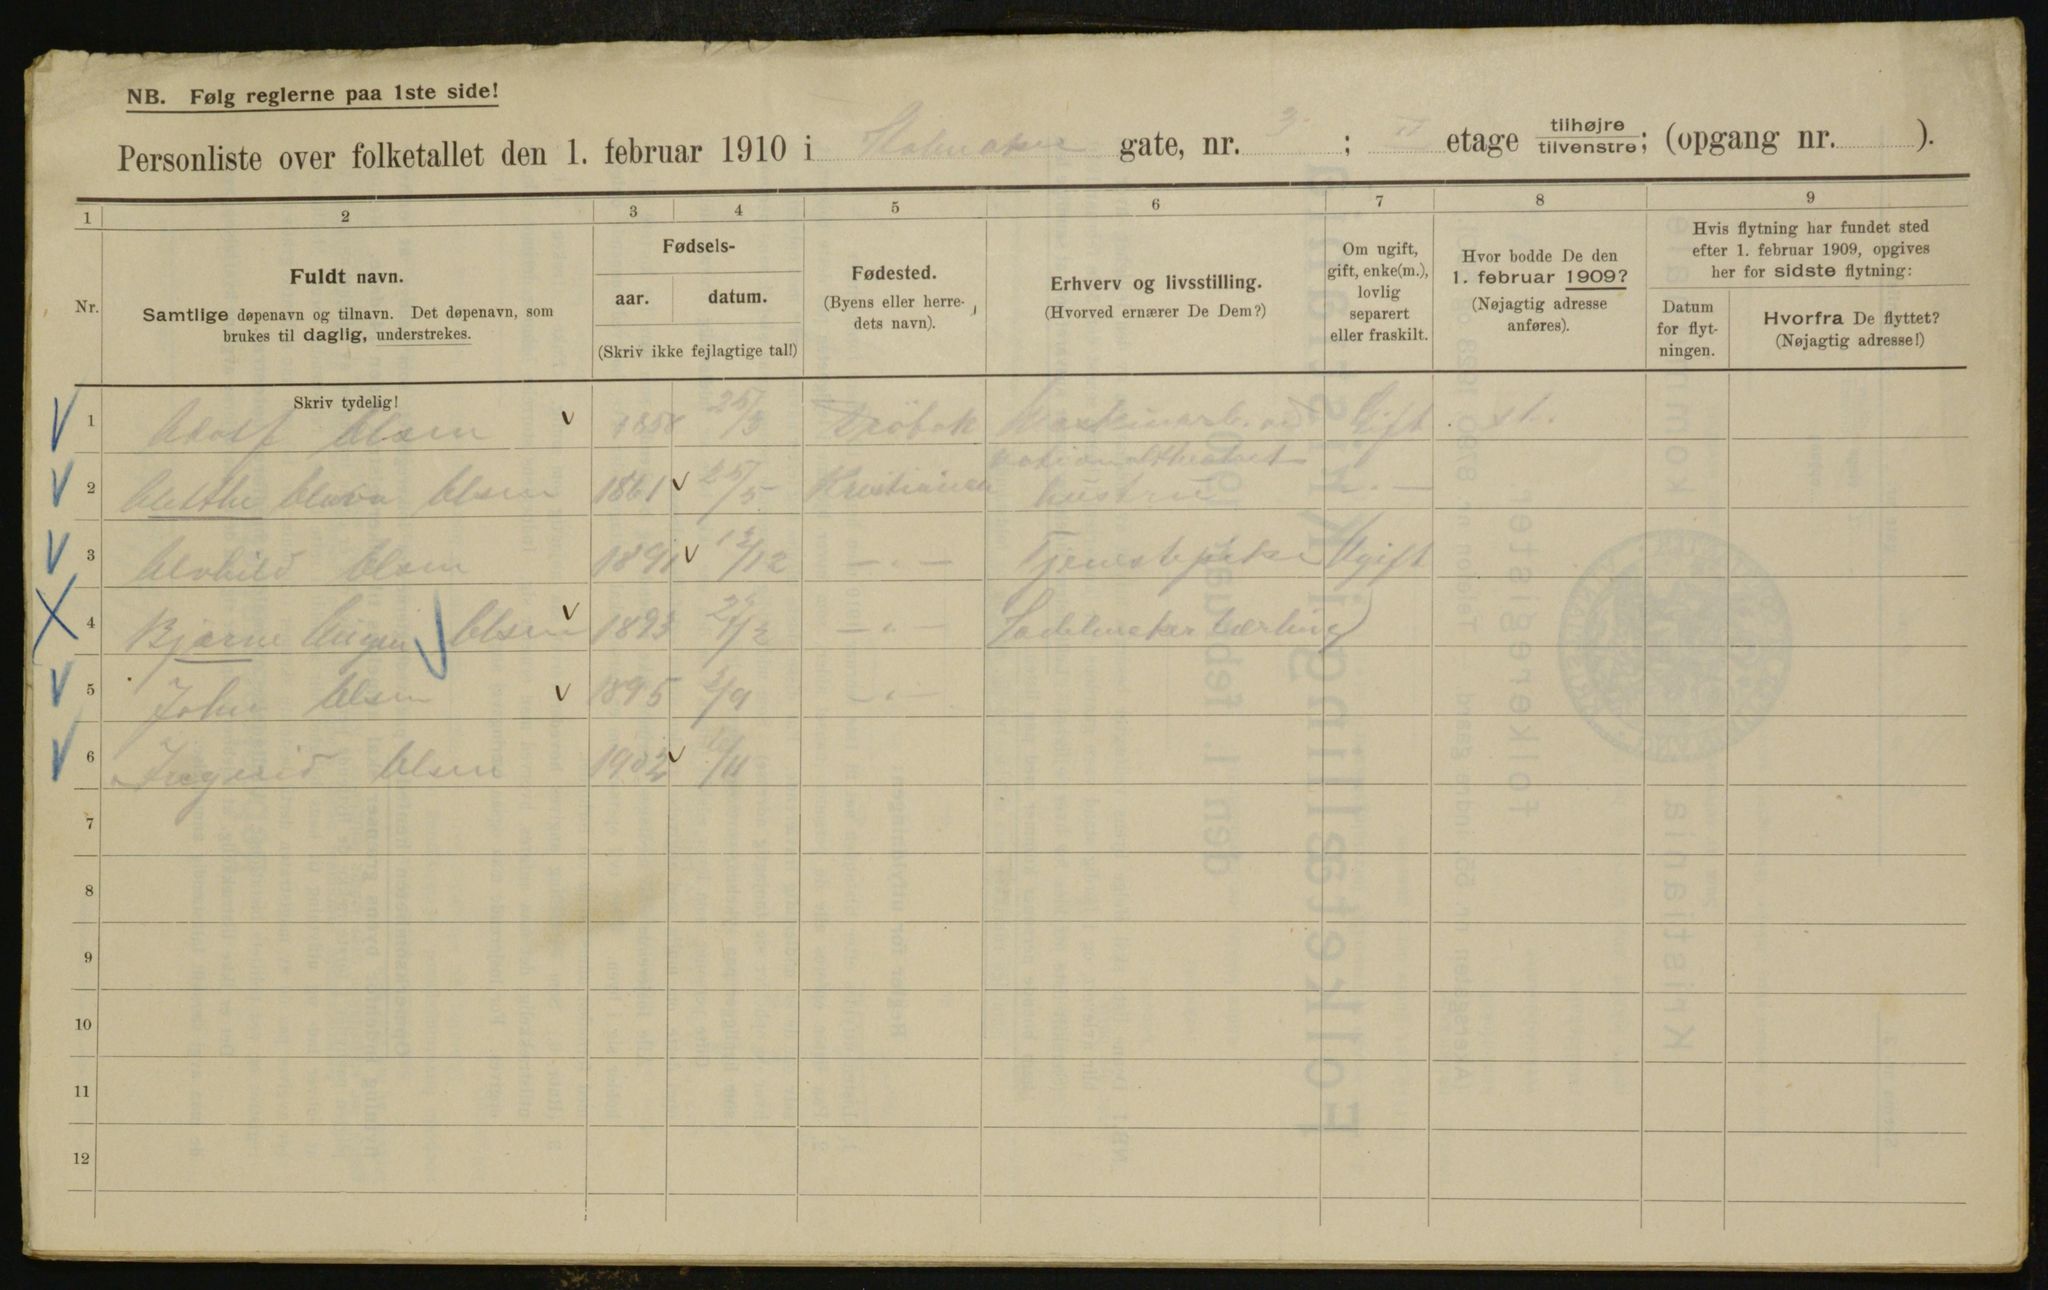 NB. Følg reglerne paa 1ste side!
Personliste over folketallet den 1. februar 1910 i gate, nr. 3 ; II etage tilhøjre tilvenstre; (opgang nr. ).
1 2 3 4 5 6 7 8 9
Nr.
Fuldt navn.
Samtlige døpenavn og tilnavn. Det døpenavn, som
brukes til daglig, understrekes.
Fødsels-
aar. datum.
(Skriv ikke fejlagtige tal!)
Fødested.
(Byens eller herre-
dets navn).
Erhverv og livsstilling.
(Hvorved ernærer De Dem?)
Om ugift,
gift, enke(m.),
lovlig
separert
eller fraskilt.
Hvor bodde De den
1. februar 1909?
(Nøjagtig adresse
anføres).
Hvis flytning har fundet sted
efter 1. februar 1909, opgives
her for sidste flytning:
Datum
for flyt-
ningen.
Hvorfra De flyttet?
(Nøjagtig adresse!)
Skriv tydelig!
1 Adolf Olsen 1858 25/3 Drøbak Maskinarb. Gift st.
Nationaltheatret
2 Olsen 1861 25/5 Kristiania hustru — " —
3 Olsen 1891 12/12 — " — Tjenestepike Ugift
4 Bjarne Olsen 1893 — " — Sadelmaker Lærling
5 John Olsen 1895 — " —
6 Ingrid Olsen 1902
7
8
9
10
11
12